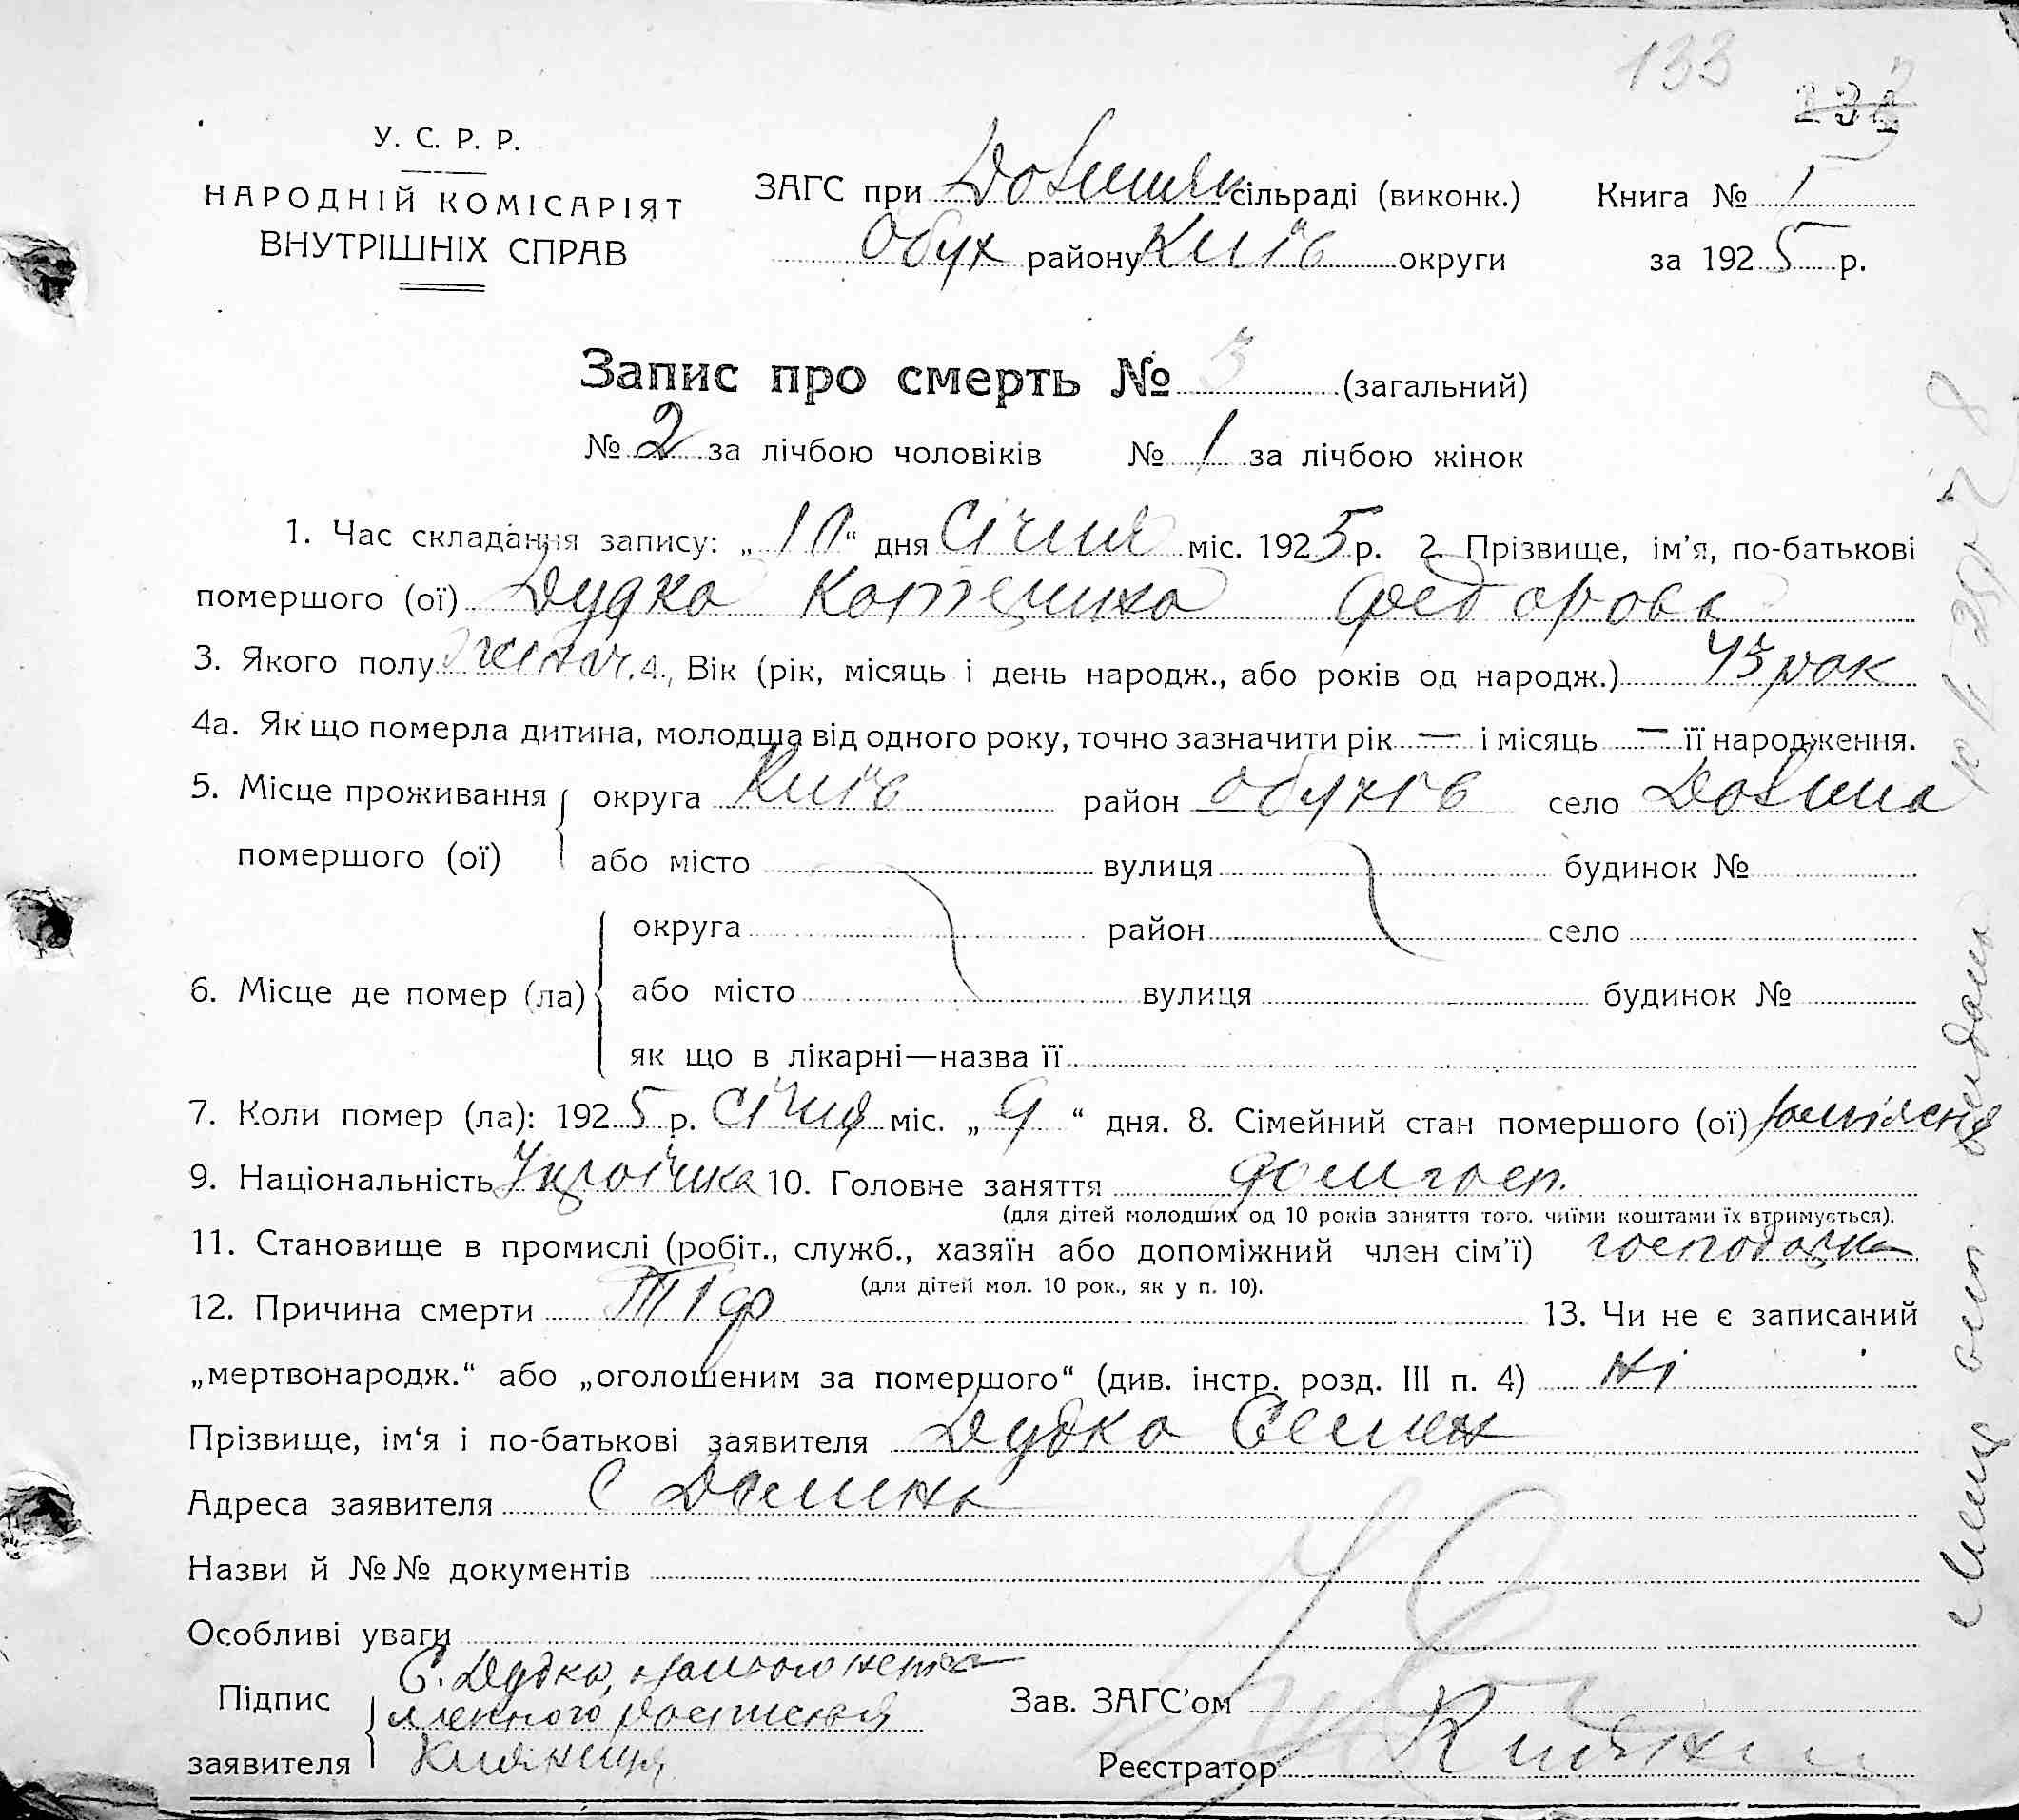 133
У. С. Р. Р.
НАРОДНІЙ КОМІСАРІЯТ
ВНУТРІШНІХ СПРАВ
ЗАГС при Долинян сільраді (виконк.) Книга № 1
Обух району Київ округи за 1925 р.
Запис про смерть № 3 (загальний)
№ 2 за лічбою чоловіків № 1 за лічбою жінок
1. Час складання запису: „10“ дня Січня міс. 1925 р. 2. Прізвище, ім'я, по-батькові
помершого (ої) Дудка Катерина Федорова
3. Якого полу жіноч. 4. Вік (рік, місяць і день народж., або років од народж.) 43 рок
4а. Як що померла дитина, молодша від одного року, точно зазначити рік — і місяць — її народження.
5. Місце проживання округа Київ район Обухів село Долина
помершого (ої) або місто вулиця будинок №
округа район село
6. Місце де помер (ла) або місто вулиця будинок №
як що в лікарні—назва її
7. Коли помер (ла): 1925 р. Січня міс. „9“ дня. 8. Сімейний стан помершого (ої)
9. Національність Україинка 10. Головне заняття домгосп.
(для дітей молодших од 10 років заняття того, чиїми коштами їх втримується).
11. Становище в промислі (робіт., служб., хазяїн або допоміжний член сім'ї) господарка
(для дітей мол. 10 рок., як у п. 10).
12. Причина смерти Тіф 13. Чи не є записаний
„мертвонародж.“ або „оголошеним за помершого“ (див. інстр. розд. III п. 4) Ні
Прізвище, ім'я і по-батькові заявителя Дудка Семен
Адреса заявителя С Долина
Назви й №№ документів
Особливі уваги
Підпис С. Дудка,
заявителя
Зав. ЗАГС'ом
Реєстратор